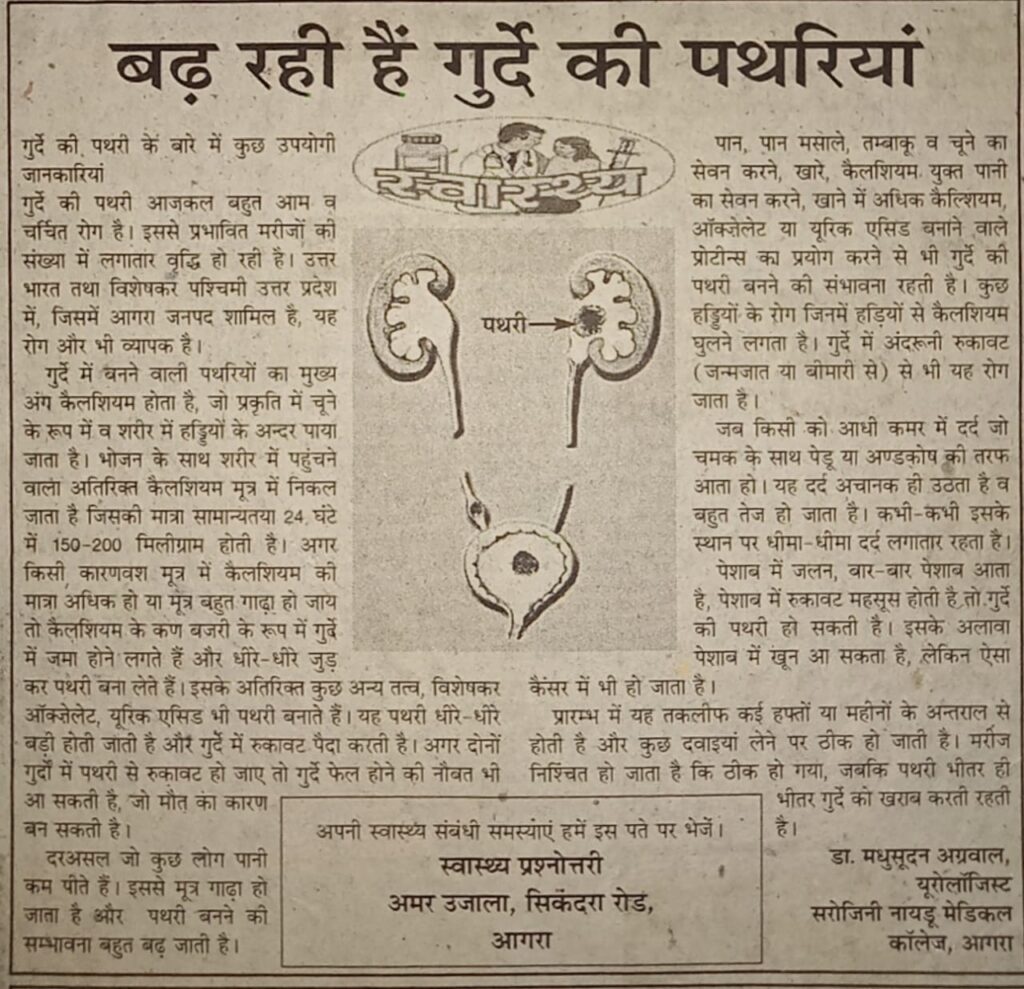 बढ़ रही हैं गुर्दे की पथरियां
गुर्दे की पथरी के बारे में कुछ उपयोगी
जानकारियां
गुर्दे की पथरी आजकल बहुत आम व
चर्चित रोग है। इससे प्रभावित मरीजों की
संख्या में लगातार वृद्धि हो रही है। उत्तर
भारत तथा विशेषकर पश्चिमी उत्तर प्रदेश
में, जिसमें आगरा जनपद शामिल है, यह
रोग और भी व्यापक है।
गुर्दे में बनने वाली पथरियों का मुख्य
अंग कैलशियम होता है, जो प्रकृति में चूने
के रूप में व शरीर में हड्डियों के अन्दर पाया
जाता है। भोजन के साथ शरीर में पहुंचने
वाला अतिरिक्त कैलशियम मूत्र में निकल
जाता है जिसकी मात्रा सामान्यतया 24 घंटे
में 150-200 मिलीग्राम होती है। अगर
किसी कारणवश मूत्र में कैलशियम की
मात्रा अधिक हो या मूत्र बहुत गाढ़ा हो जाय
तो कैलशियम के कण बजरी के रूप में गुर्दे
में जमा होने लगते हैं और धीरे-धीरे जुड़
कर पथरी बना लेते हैं। इसके अतिरिक्त कुछ अन्य तत्व, विशेषकर
ऑक्जेलेट, यूरिक एसिड भी पथरी बनाते हैं। यह पथरी धीरे-धीरे
बड़ी होती जाती है और गुर्दे में रुकावट पैदा करती है। अगर दोनों
गुर्दों में पथरी से रुकावट हो जाए तो गुर्दे फेल होने की नौबत भी
आ सकती है, जो मौत का कारण
बन सकती है।
दरअसल जो कुछ लोग पानी
कम पीते हैं। इससे मूत्र गाढ़ा हो
जाता है और पथरी बनने की
सम्भावना बहुत बढ़ जाती है।
स्वास्थ्य
पथरी
पान, पान मसाले, तम्बाकू व चूने का
सेवन करने, खारे, कैलशियम युक्त पानी
का सेवन करने, खाने में अधिक कैल्शियम,
ऑक्जेलेट या यूरिक एसिड बनाने वाले
प्रोटीन्स का प्रयोग करने से भी गुर्दे की
पथरी बनने की संभावना रहती है। कुछ
हड्डियों के रोग जिनमें हड़ियों से कैलशियम
घुलने लगता है। गुर्दे में अंदरूनी रुकावट
(जन्मजात या बीमारी से) से भी यह रोग
जाता है।
जब किसी को आधी कमर में दर्द जो
चमक के साथ पेडू या अण्डकोष की तरफ
आता हो। यह दर्द अचानक ही उठता है व
बहुत तेज हो जाता है। कभी-कभी इसके
स्थान पर धीमा-धीमा दर्द लगातार रहता है।
पेशाब में जलन, बार-बार पेशाब आता
है, पेशाब में रुकावट महसूस होती है तो गुर्दे
की पथरी हो सकती है। इसके अलावा
पेशाब में खून आ सकता है, लेकिन ऐसा
कैंसर में भी हो जाता है।
प्रारम्भ में यह तकलीफ कई हफ्तों या महीनों के अन्तराल से
होती है और कुछ दवाइयां लेने पर ठीक हो जाती है। मरीज
निश्चित हो जाता है कि ठीक हो गया, जबकि पथरी भीतर ही
भीतर गुर्दे को खराब करती रहती
है।
डा. मधुसूदन अग्रवाल,
यूरोलॉजिस्ट
सरोजिनी नायडू मेडिकल
कॉलेज, आगरा
अपनी स्वास्थ्य संबंधी समस्याएं हमें इस पते पर भेजें।
स्वास्थ्य प्रश्नोत्तरी
अमर उजाला, सिकंदरा रोड,
आगरा